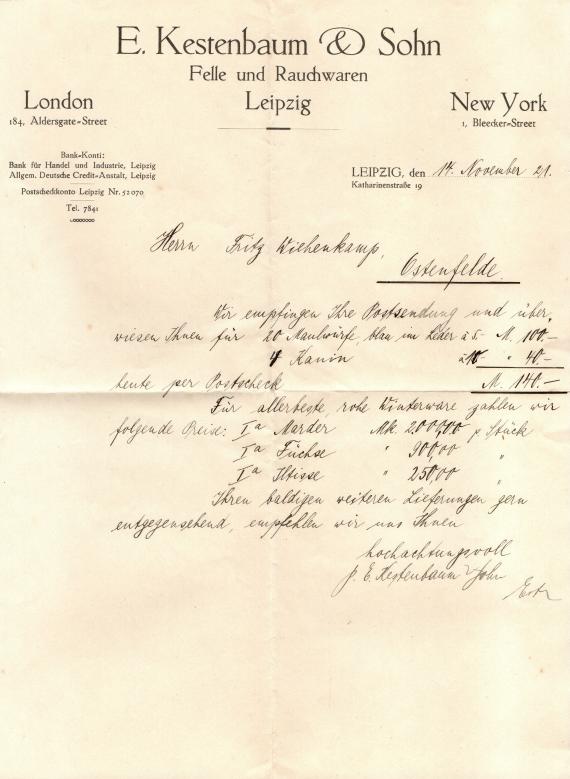 E. Kestenbaum & Sohn
Felle und Rauchwaren
London
184, Aldersgate-Street
Leipzig
New York
1, Bleecker-Street
Bank-Konti:
Bank für Handel und Industrie, Leipzig
Allgem. Deutsche Credit-Anstalt, Leipzig
Postscheckkonto Leipzig Nr. 52070
Tel. 7841
LEIPZIG, den 14. November 21.
Katharinenstraße 19
Herrn Fritz Wiehenkamp,
Ostenfelde.
Wir empfingen Ihre Postsendung und über,
wiesen Ihnen für 20 Maulwürfe, blau im Leder à 5.- M. 100.–
4 Kanin à 10 " 40.–
heute per Postscheck M. 140.–
Für allerbeste, rohe Winterware zahlen wir
folgende Preise: Iª Marder Mk. 2000,00 p Stück
Iª Füchse " 900,00 "
Iª Iltisse " 250,00 "
Ihren baldigen weiteren Lieferungen gern
entgegensehend, empfehlen wir uns Ihnen
hochachtungsvoll
p. E. Kestenbaum & Sohn